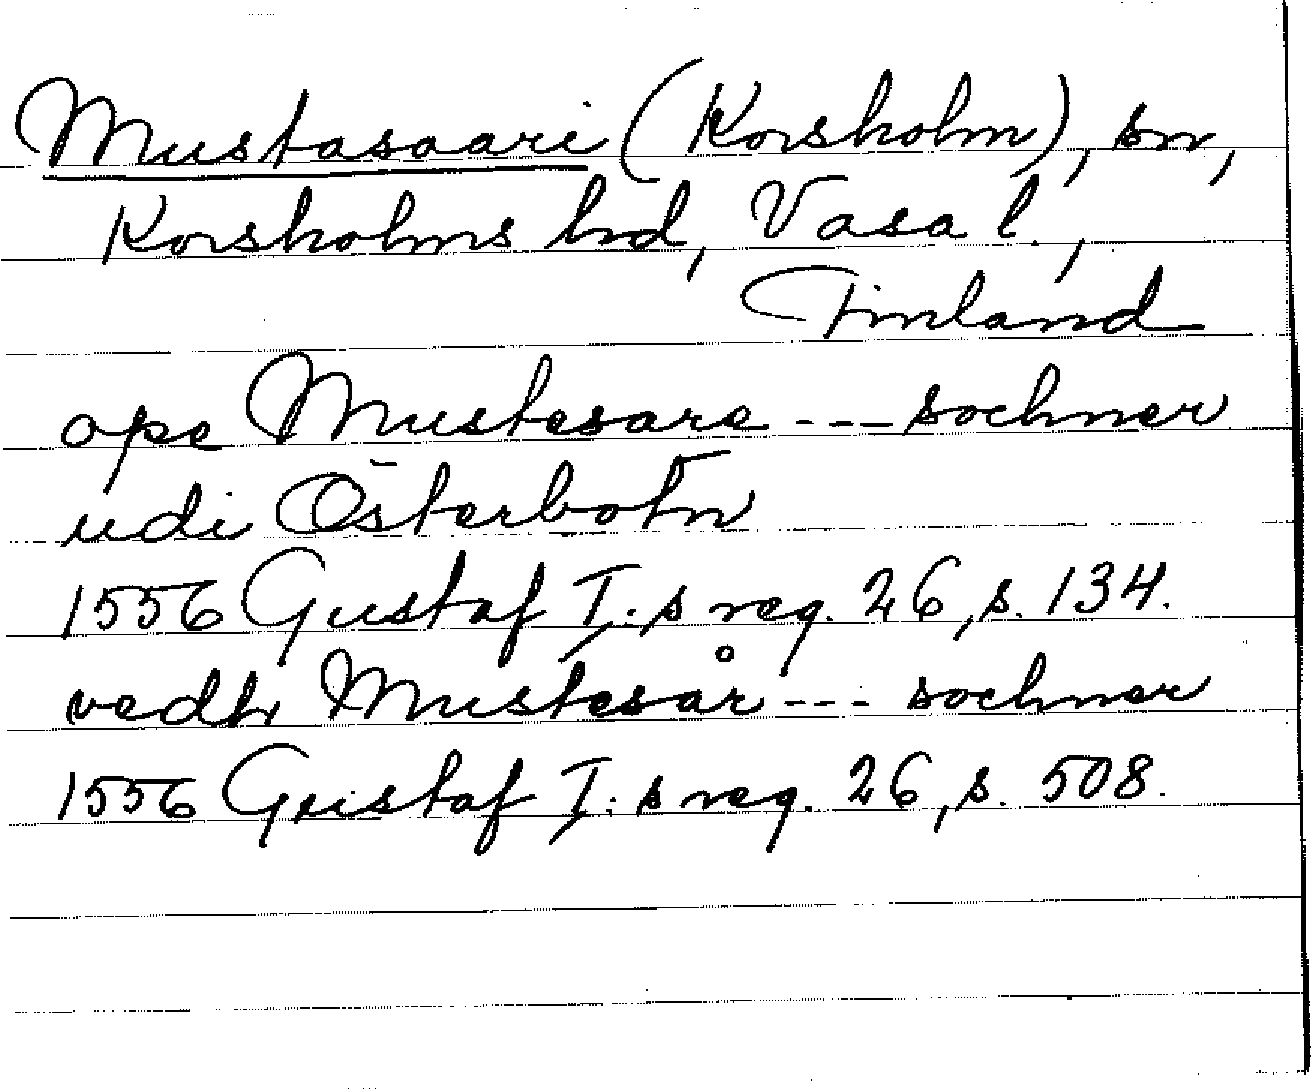 Mustasaari (Korsholm), sn,
Korsholms hd, Vasa l.,
Finland
ope Mustesare --- sochner
udi Österbotn̄
1556 Gustaf I:s reg. 26, s. 134.
vedh Mustesår --- sochner
1556 Gustaf I:s reg. 26, s. 508.